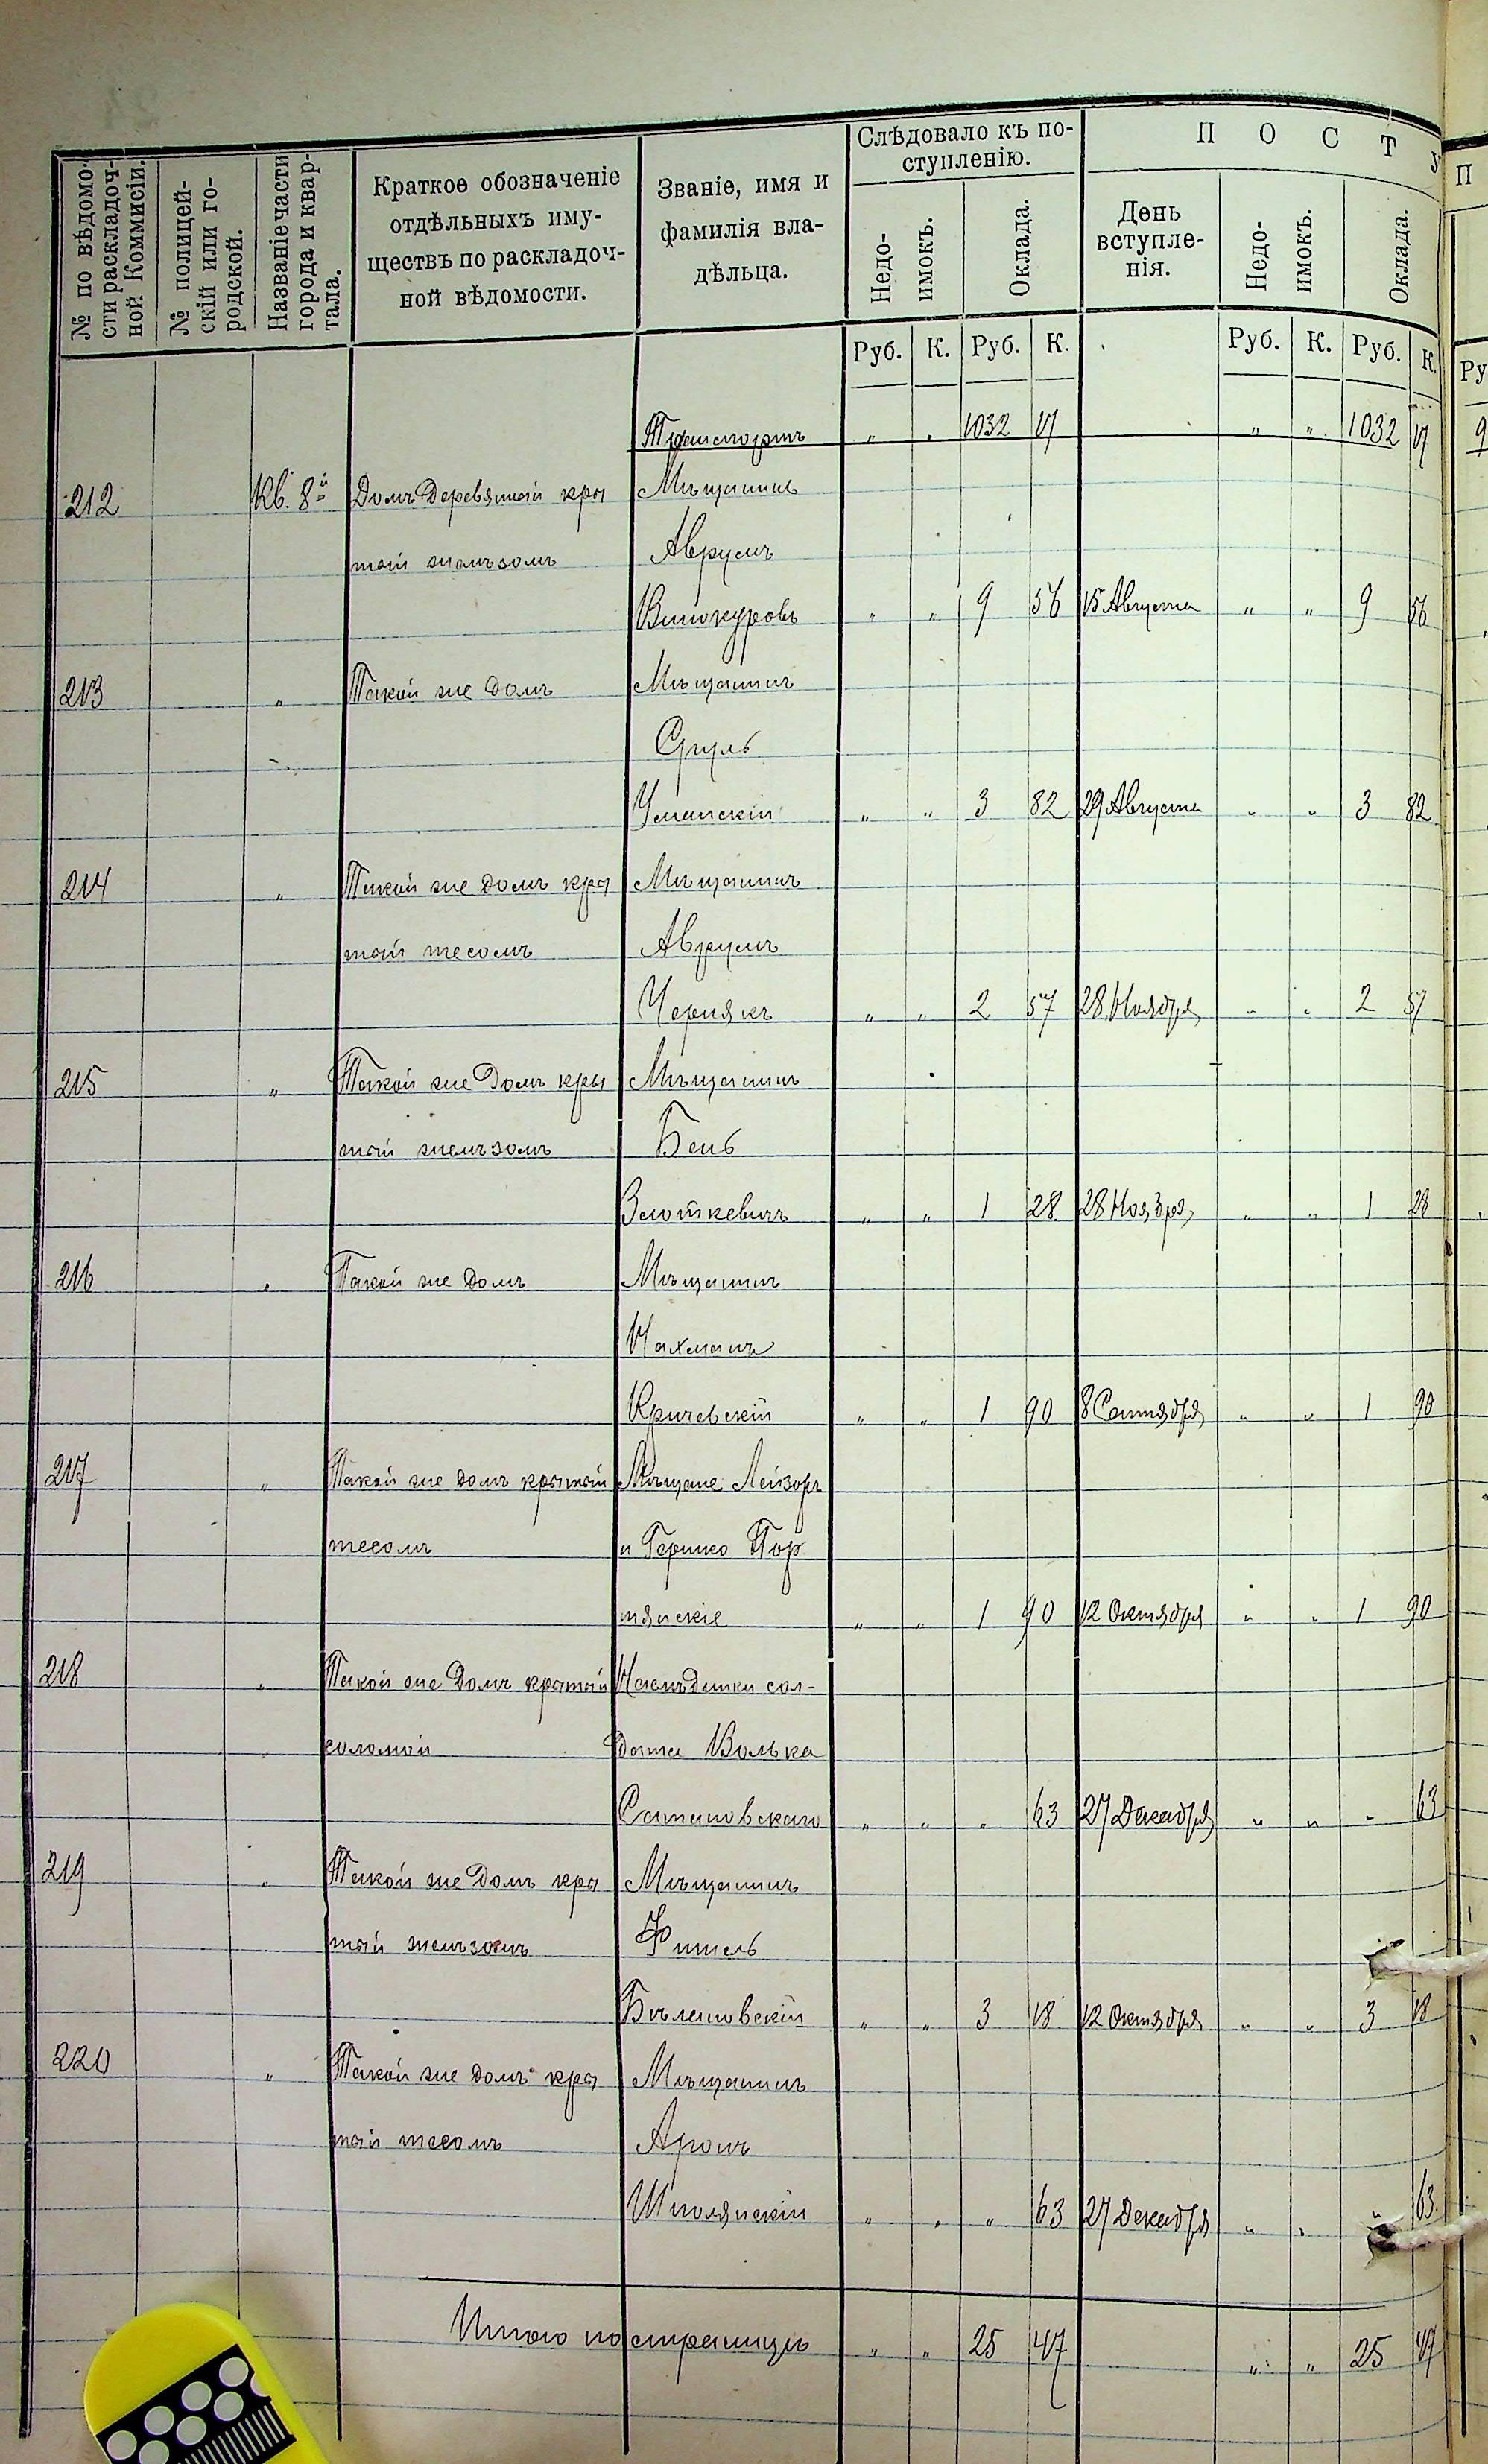 № по вѣдомо-
сти раскладоч-
ной Коммисіи.
№ полицей-
скій или го-
родской.
Названіе части
города и квар-
тала.
Краткое обозначеніе
отдѣльныхъ иму-
ществъ по раскладоч-
ной вѣдомости.
Званіе, имя и
фамилія вла-
дѣльца.
Слѣдовало къ по-
ступленію.
Недо-
имокъ.
Оклада.
П О С Т У
День
вступле-
нія.
Недо-
имокъ.
Оклада.
Руб. К. Руб. К. Руб. К. Руб. К.
Транспортъ " " 1032 17 " " 1032 17
212 Кв. 8й Домъ деревянный кры Мѣщанинъ
тый желѣзомъ Аврумъ
Винокуровъ " " 9 56 15 Августа " " 9 56
213 " Такой же домъ Мѣщанинъ
Сруль
Уманскій " " 3 82 29 Августа " " 3 82
214 " Такой же домъ кры Мѣщанинъ
тый тесомъ Аврумъ
Чернякъ " " 2 57 28 Ноября " " 2 57
215 " Такой же домъ кры Мѣщанинъ
тый желѣзомъ Бень
Злоткевичъ " " 1 28 28 Ноября " " 1 28
216 " Такой же домъ Мѣщанинъ
Нахманъ
Кричевскій " " 1 90 8 Сентября " " 1 90
217 " Такой же домъ крытый Мѣщане Лейзоръ
тесомъ и Гершко Пор
нянскіе " " 1 90 12 Октября " " 1 90
218 " Такой же домъ крытый Наслѣдники сол-
соломой дата Волька
Сатановскаго " " " 63 27 Декабря " " " 63
219 " Такой же домъ кры Мѣщанинъ
тый желѣзомъ Фишель
Бѣлиловскій " " 3 18 12 Октября " " 3 18
220 " Такой же домъ кры Мѣщанинъ
тый тесомъ Аронъ
Шполянскій " " " 63 27 Декабря " " " 63
Итого по страницѣ " " 25 47 " " 25 47